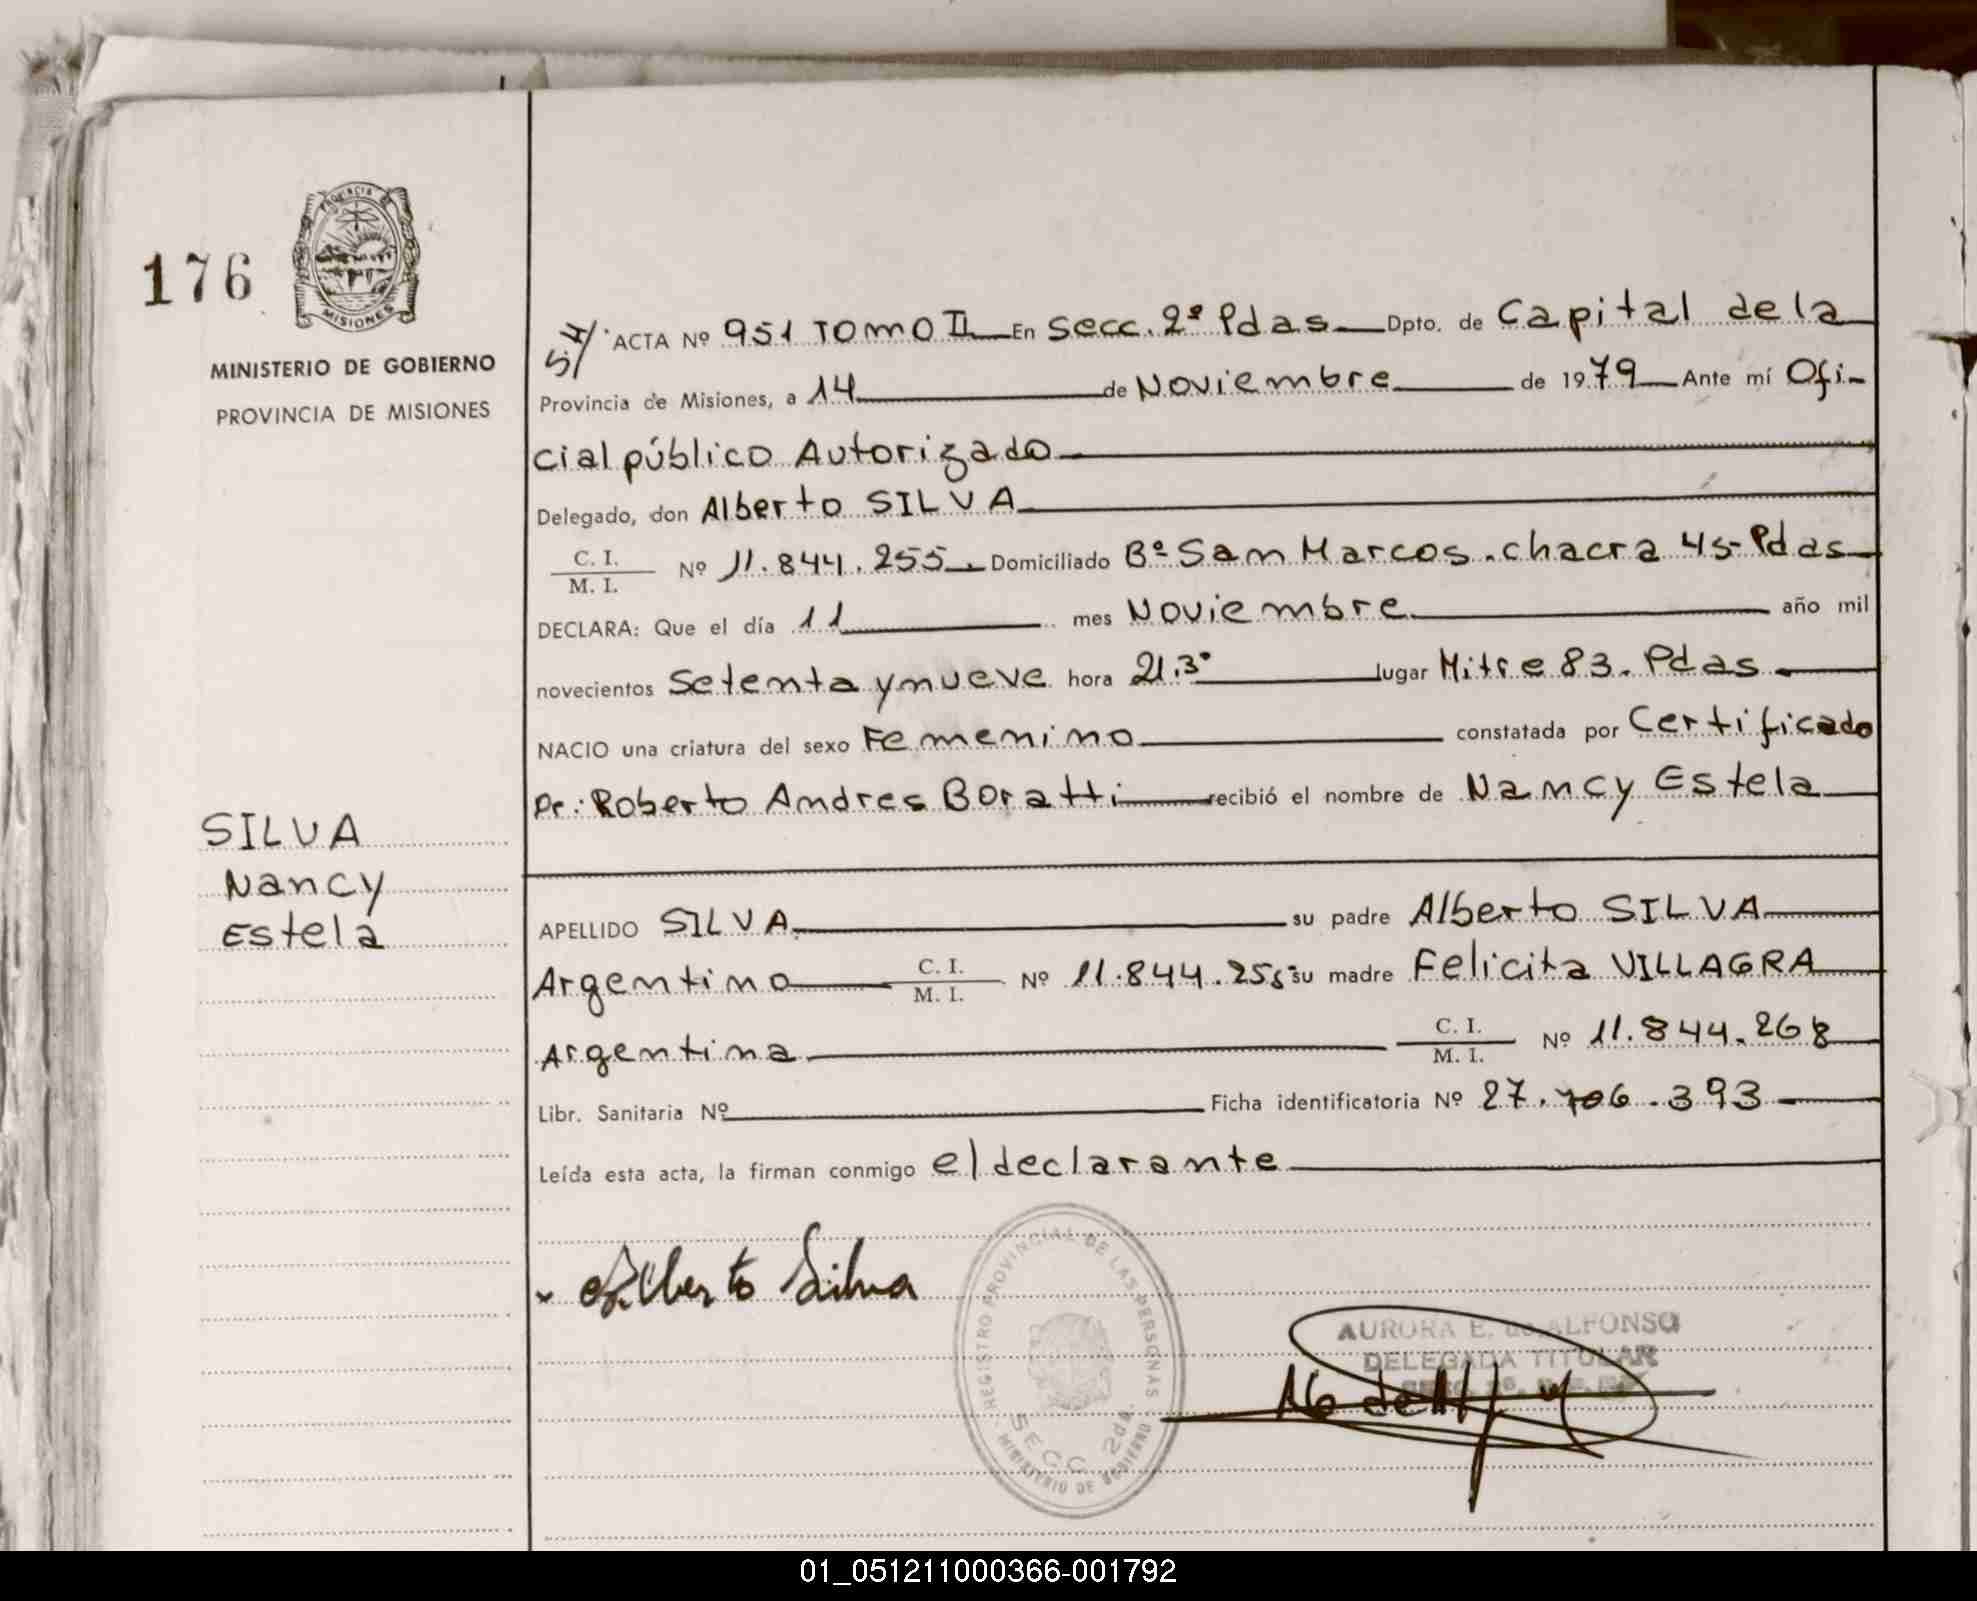 176
PROVINCIA DE
MISIONES
MINISTERIO DE GOBIERNO
PROVINCIA DE MISIONES
SILVA
Nancy
Estela
ACTA Nº 951 TOMO II En Secc. 2ª Pdas Dpto. de Capital de la
Provincia de Misiones, a 14 de Noviembre de 1979 Ante mí Ofi-
cial público Autorizado
Delegado, don Alberto SILVA
C. I.
M. I. Nº 11.844.255 Domiciliado Bº San Marcos. chacra 45- Pdas
DECLARA: Que el día 11 mes Noviembre año mil
novecientos Setenta y nueve hora 21.3º lugar Mitre 83. Pdas
NACIO una criatura del sexo Femenino constatada por Certificado
Dr: Roberto Andres Boratti recibió el nombre de Nancy Estela
APELLIDO SILVA su padre Alberto SILVA
Argentino C. I.
M. I. Nº 11.844.255 su madre Felicita VILLAGRA
Argentina C. I.
M. I. Nº 11.844.268
Libr. Sanitaria Nº Ficha identificatoria Nº 27.706.393
Leída esta acta, la firman conmigo el declarante
Alberto Silva
REGISTRO PROVINCIAL DE LAS PERSONAS
SECC 2da
MINISTERIO DE GOBIERNO
AURORA E. de ALFONSO
DELEGADA TITULAR
01_051211000366-001792